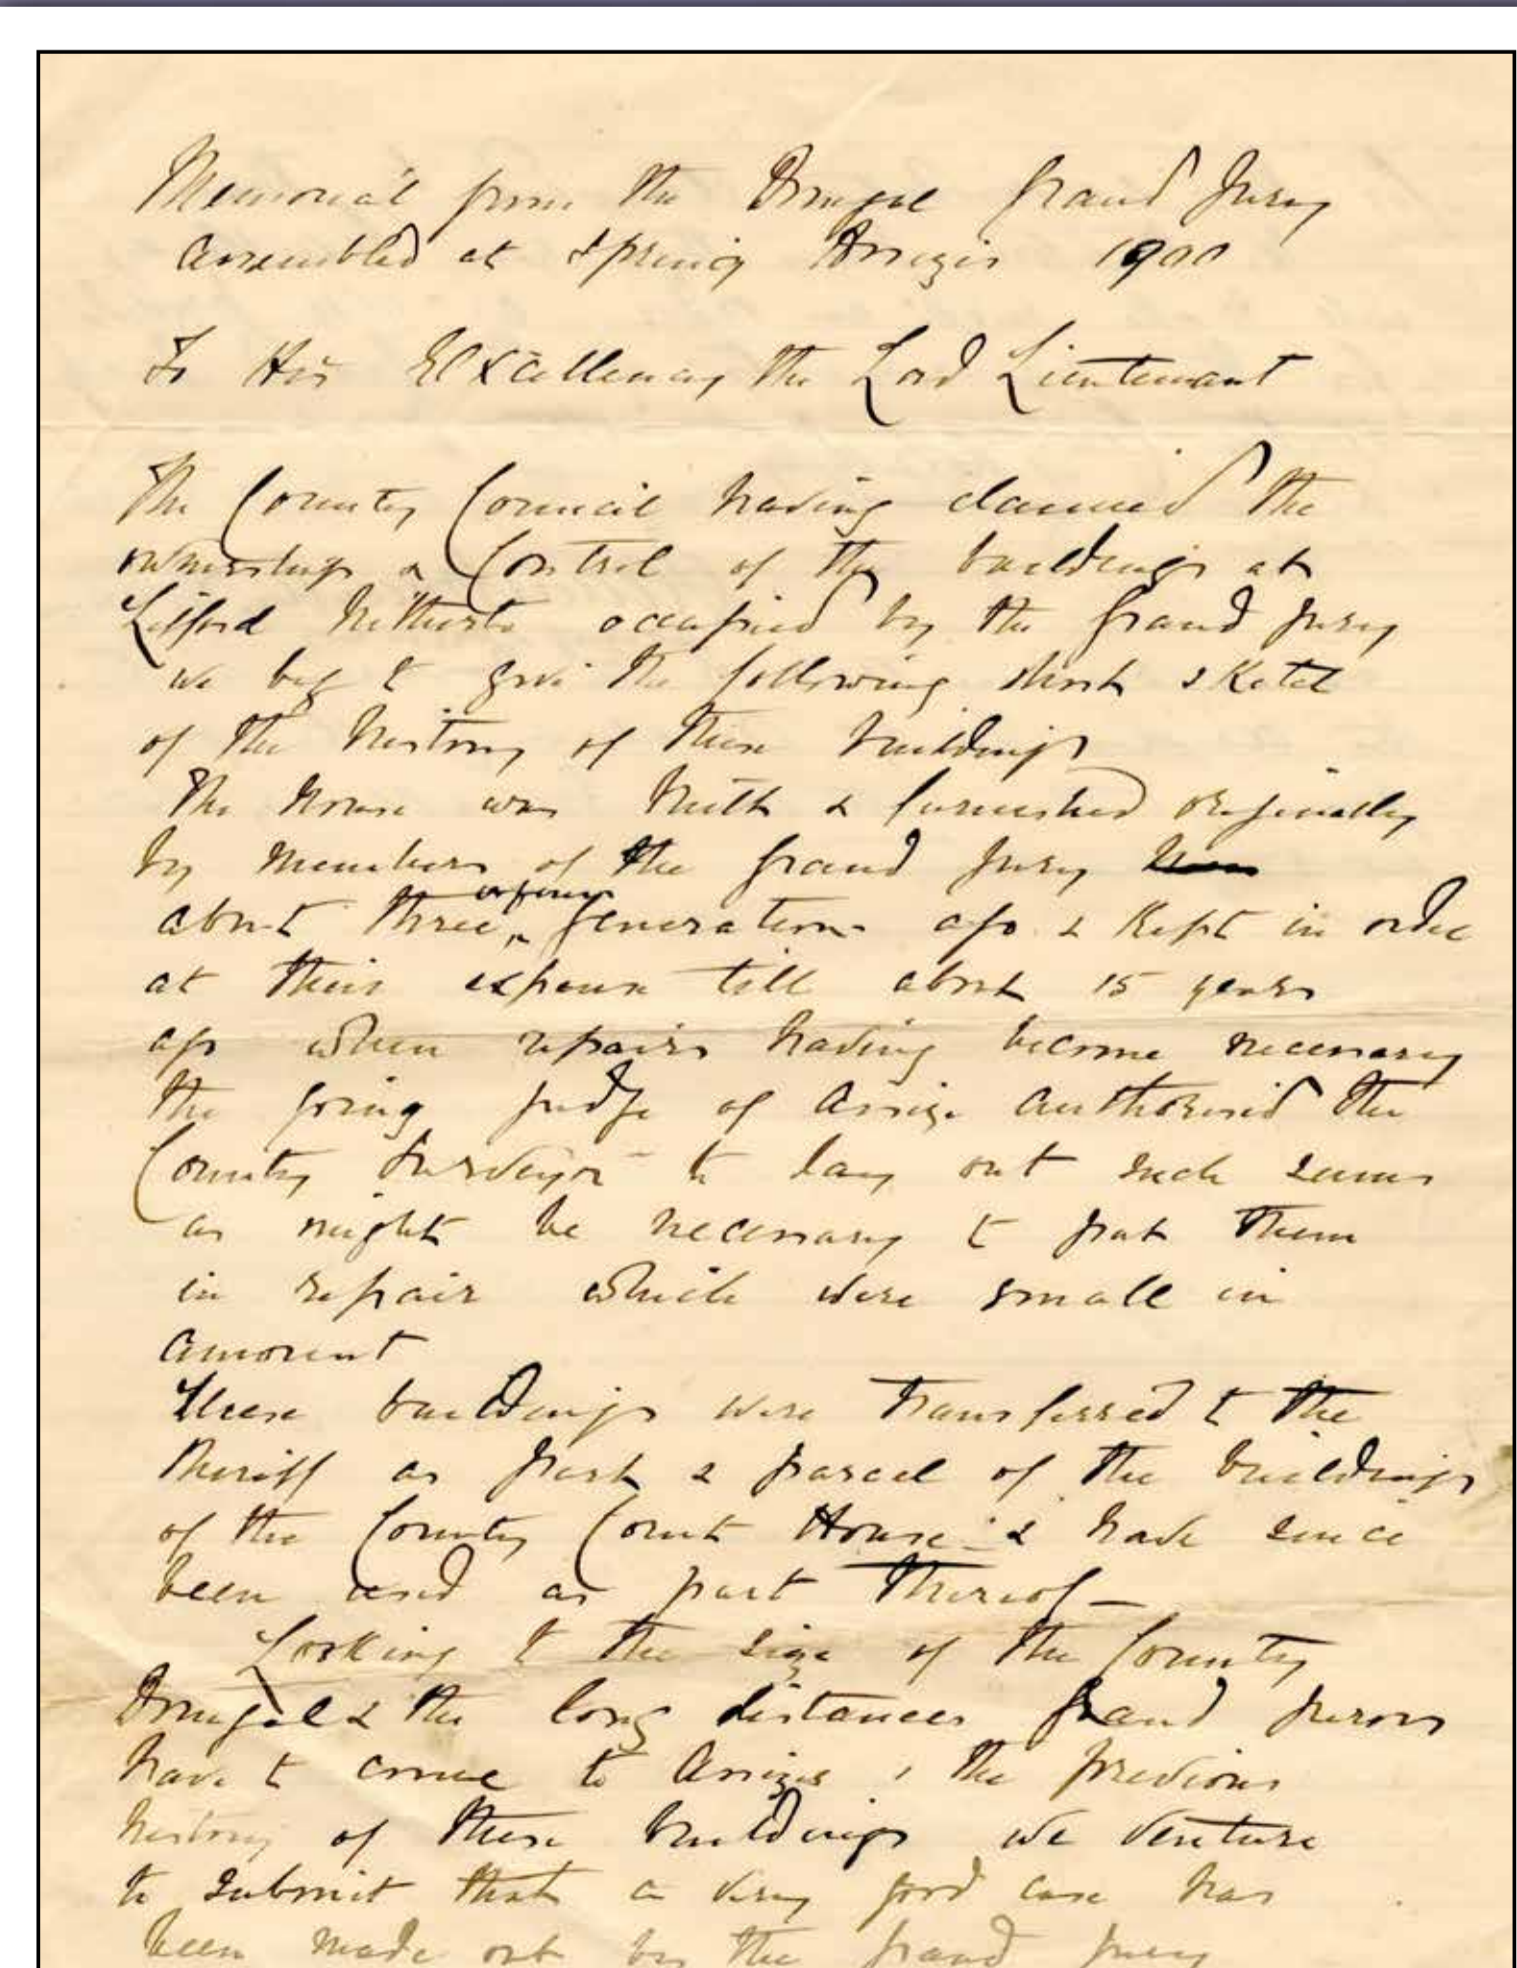 Memorial from the Donegal Grand Jury
assembled at Spring Assizes 1900
To His Excellency the Lord Lieutenant
The County Council having claimed the
ownership & Control of the buildings at
Lifford hitherto occupied by the Grand Jury
we beg to give the following short sketch
of the history of these buildings
The house was built & furnished originally
by members of the Grand Jury
or four
about three generations ago & kept in order
at their expense till about 15 years
ago when repairs having become necessary
the going Judge of Assize authorised the
County Surveyor to lay out such sums
as might be necessary to put them
in repair which were small in
amount
These buildings were transferred to the
Sheriff as part & parcel of the buildings
of the County Court House & have since
been used as part thereof—
Looking to the size of the County
Donegal & the long distances Grand Jurors
have to come to Assizes, the previous
history of these buildings we venture
to submit that a very good case has
been made out by the Grand Jury